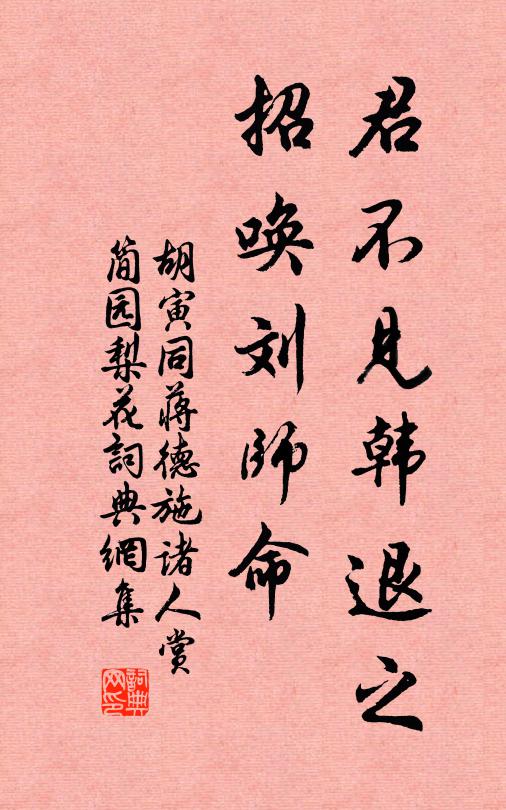 君不见韩退之
招唤刘师命
胡寅同蒋德施诸人赏
简园梨花詞典網集
詞典网印